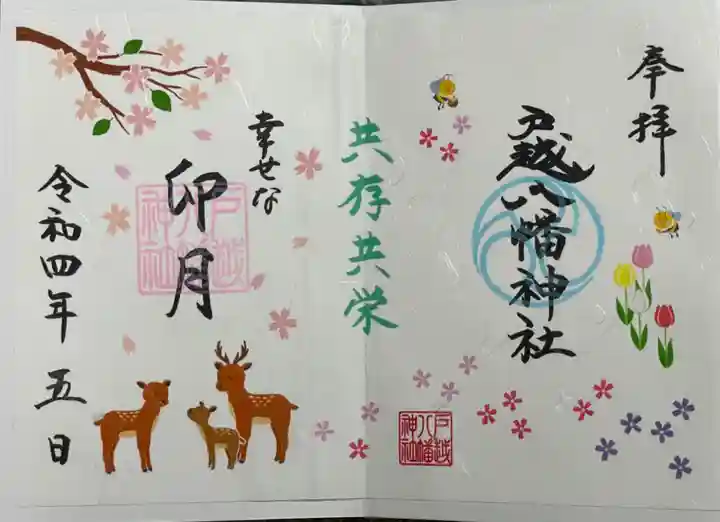 奉拝
戸越八幡神社
共存共栄
幸せな
卯月
令和四年 五日
戸越
八幡
神社
戸越
八幡
神社